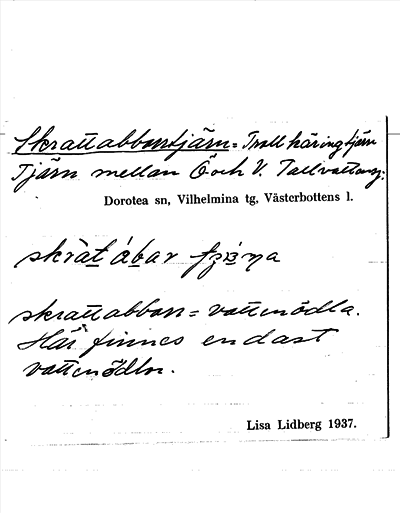 Skrattabborrtjärn = Trollkäringtjärn
Tjärn mellan Ö och V. Tallvattnsj.
Dorotea sn, Vilhelmina tg, Västerbottens l.
skrattabborr = vattenödla.
Här finnes endast
vattenödlor.
Lisa Lidberg 1937.